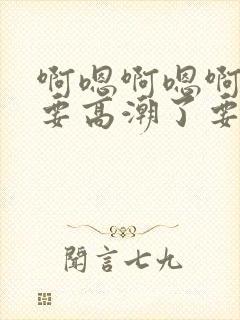 啊嗯啊嗯啊
要高潮了要
闻言七九